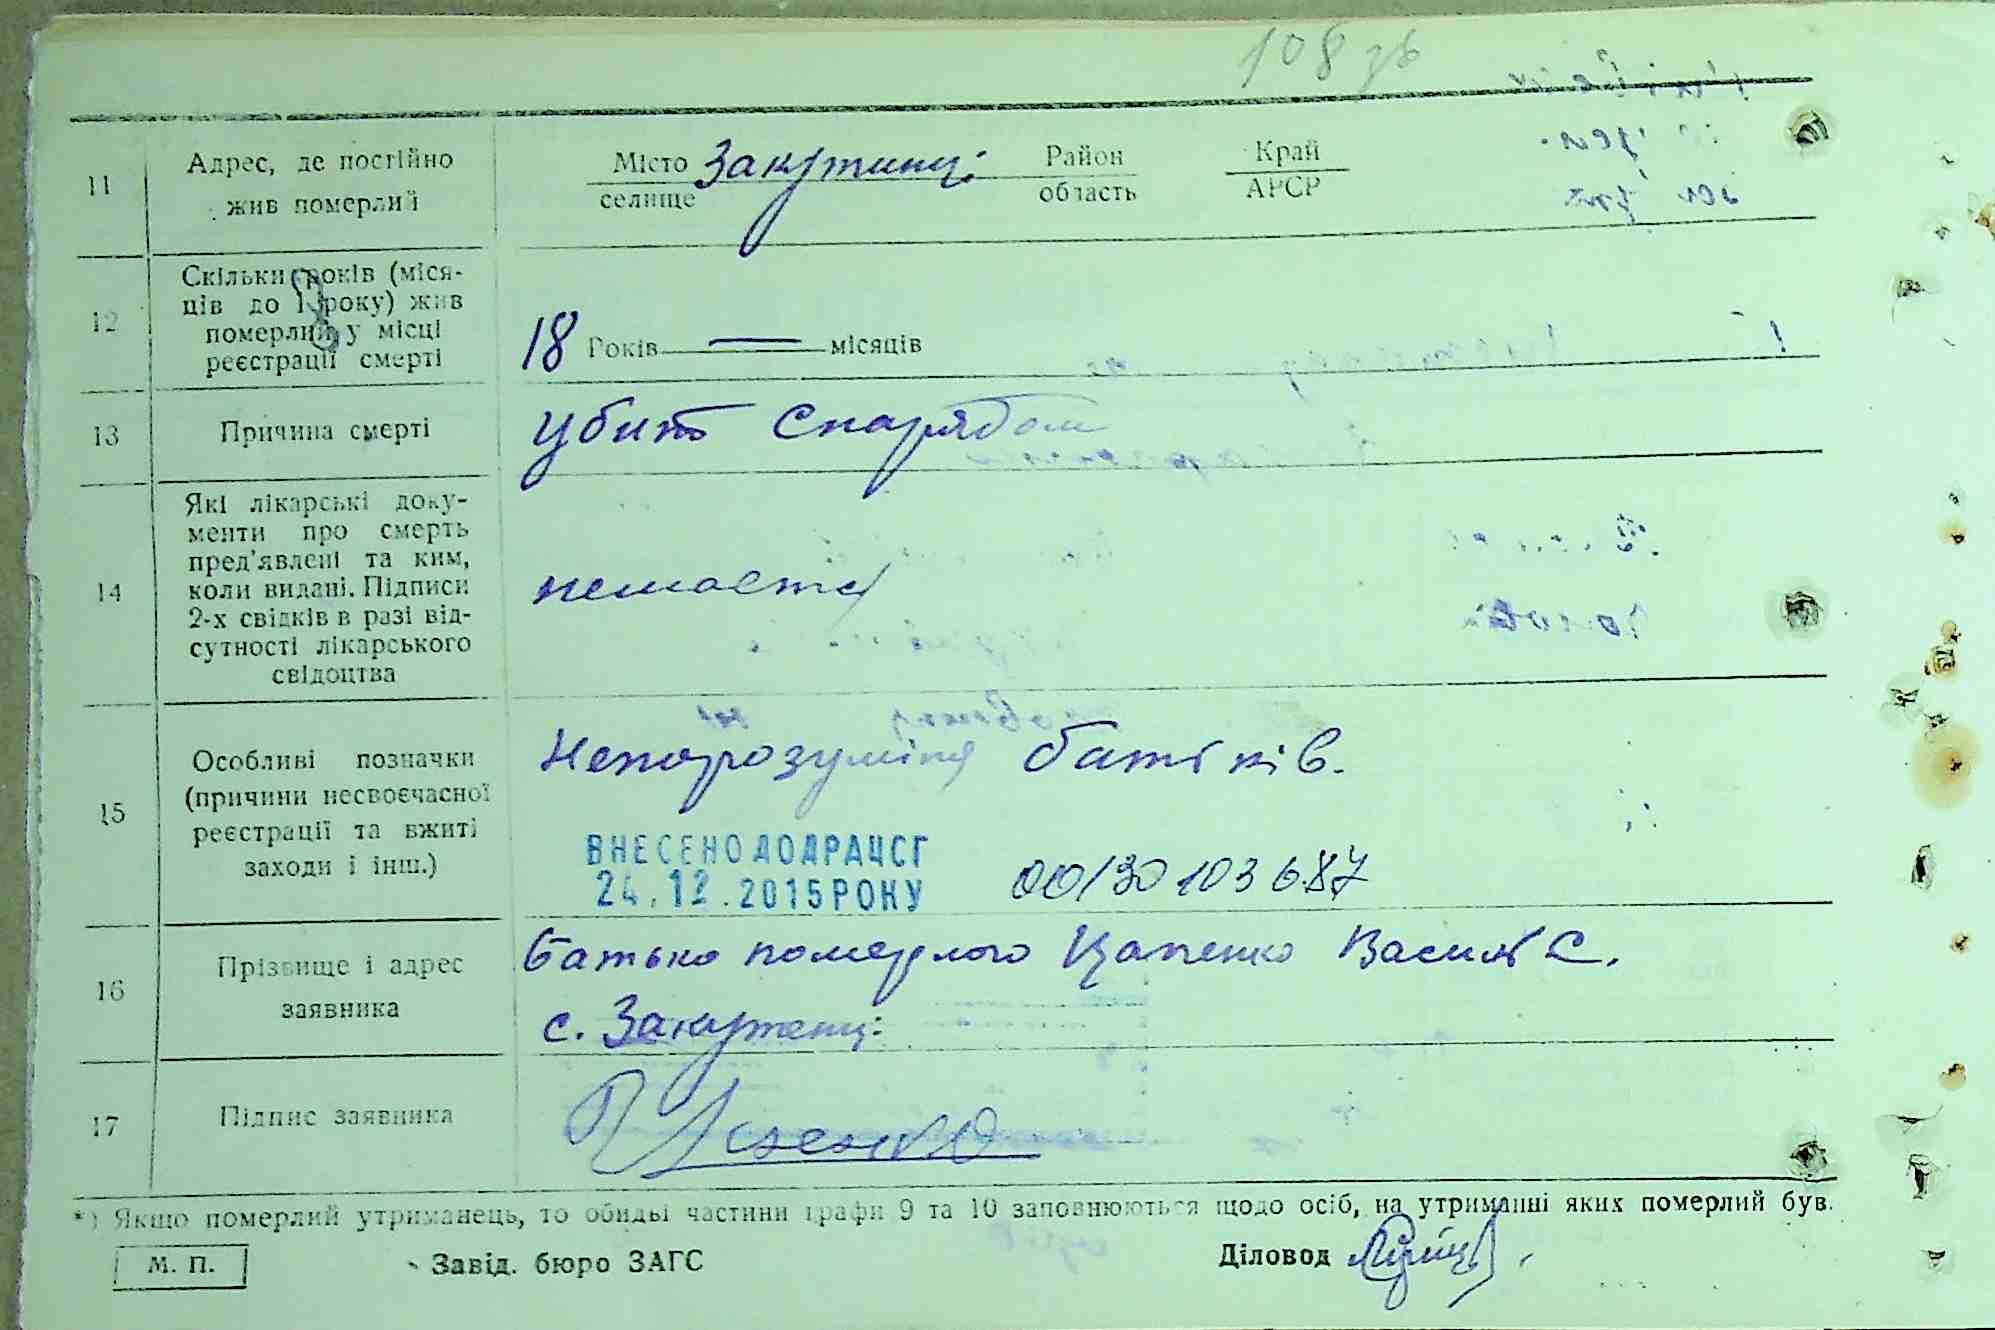 108 зв
11
Адрес, де постійно
жив померлий
Місто
селище
Закутинці
Район
область
Край
АРСР
12
Скільки років (міся-
ців до 1 року) жив
померлий у місці
реєстрації смерті
18 Років — місяців
13
Причина смерті
убит снарядом
14
Які лікарські доку-
менти про смерть
пред'явлені та ким,
коли видані. Підписи
2-х свідків в разі від-
сутності лікарського
свідоцтва
немаєтся
15
Особливі позначки
(причини несвоєчасної
реєстрації та вжиті
заходи і інш.)
Непорозуміня батьків.
ВНЕСЕНО ДО ДРАЦСГ
24.12.2015 РОКУ
00130103687
16
Прізвище і адрес
заявника
Батько померлого Цапенко Василь С.
с. Закутенці
17
Підпис заявника
*) Якщо померлий утриманець, то обидві частини графи 9 та 10 заповнюються щодо осіб, на утриманні яких померлий був.
М. П.
Завід. бюро ЗАГС
Діловод